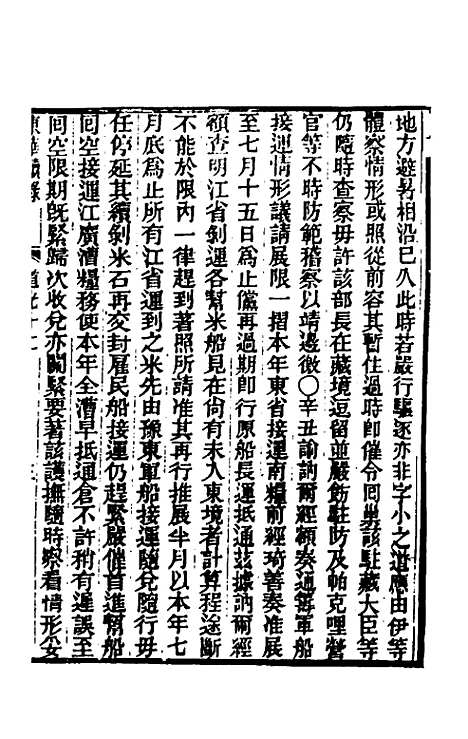 地方避暑相沿已久此時若嚴行驅逐亦非字小之道應由伊等
體察情形或照從前容其暫住過時即催令回巢該駐藏大臣等
仍隨時查察毋許該部長在藏境逗留並嚴飭駐防及帕克哩營
官等不時防範稽察以靖邊徼○辛丑諭訥爾經額奏通籌軍船
接運情形議請展限一摺本年東省接運南糧前經琦善奏准展
至七月十五日為止儻再過期即行原船長運抵通茲據訥爾經
額查明江省剝運各幫米船見在尚有未入東境者計算程途斷
不能於限內一律趕到著照所請准其再行推展半月以本年七
月底為止所有江省運到之米先由豫東軍船接運隨兌隨行毋
任停延其續剝米石再交封雇民船接運仍趕緊嚴催首進幫船
回空接運江廣漕糧務使本年全漕早抵通倉不許稍有遲誤至
回空限期既緊歸次收兌亦關緊要著該護撫隨時察看情形妥
東華續錄 道光十七